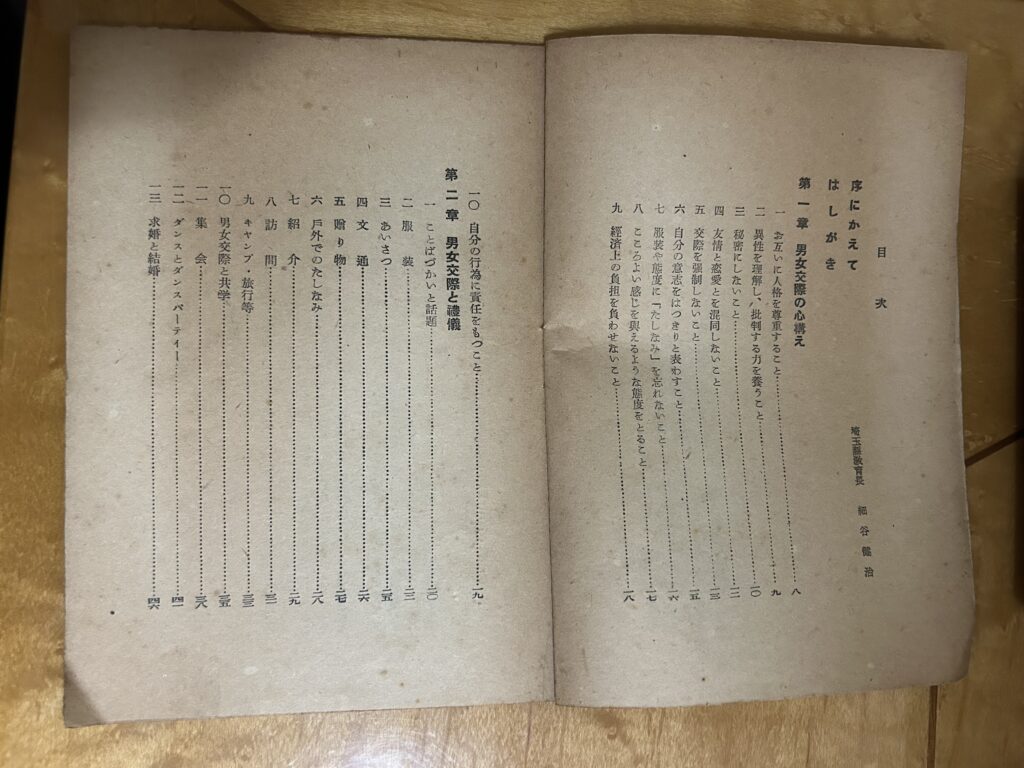 目次
序にかえて 埼玉縣教育長 細谷健治
はしがき
第一章 男女交際の心構え
一 お互いに人格を尊重すること……八
二 異性を理解し、批判する力を養うこと……九
三 秘密にしないこと……一〇
四 友情と恋愛とを混同しないこと……一二
五 交際を強制しないこと……一三
六 自分の意志をはつきりと表わすこと……一五
七 服装や態度に「たしなみ」を忘れないこと……一六
八 こころよい感じを與えるような態度をとること……一七
九 経済上の負担を負わせないこと……一八
一〇 自分の行為に責任をもつこと……一九
第二章 男女交際と禮儀
一 ことばづかいと話題……二〇
二 服装……二三
三 あいさつ……二五
四 文通……二六
五 贈り物……二七
六 戸外でのたしなみ……二八
七 紹介……二九
八 訪問……三一
九 キャンプ・旅行等……三三
一〇 男女交際と共学……三五
一一 集会……三八
一二 ダンスとダンスパーティー……四一
一三 求婚と結婚……四六